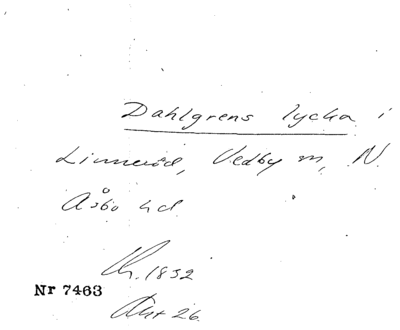 Dahlgrens lycka i
Linneröd, Vedby m, N.
Åsbo hd.
Kr. 1832
Nr 7463
Akt 26.